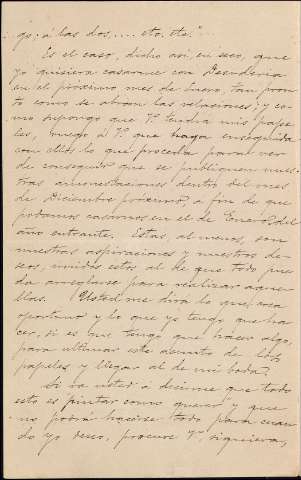 go; á las dos,.... etc. etc."...
Es el caso, dicho así, en seco, que
yo quisiera casarme con Desideria
en el próximo mes de Enero, tan pron-
to como se abran las velaciones; y co-
mo supongo que Vd. tendrá mis pape-
les, ruego á Vd. que haga enseguida
con ellos lo que proceda para ver
de conseguir que se publiquen nues-
tras amonestaciones dentro del mes
de Diciembre próximo, a fin de que
podamos casarnos en el de Enero del
año entrante. Estas, al menos, son
nuestras aspiraciones y nuestros de-
seos, unidos estos al de que todo pue-
da arreglarse para realizar aque-
llas. Usted me dirá lo que crea
oportuno y lo que yo tengo que ha-
cer, si es que tengo que hacer algo,
para ultimar este asunto de los
papeles y llegar al de mi boda?
Si va usted á decirme que todo
esto es pintar como querer y que
no podrá hacerse todo para cuan-
do yo deseo, procure Vd., siquiera,